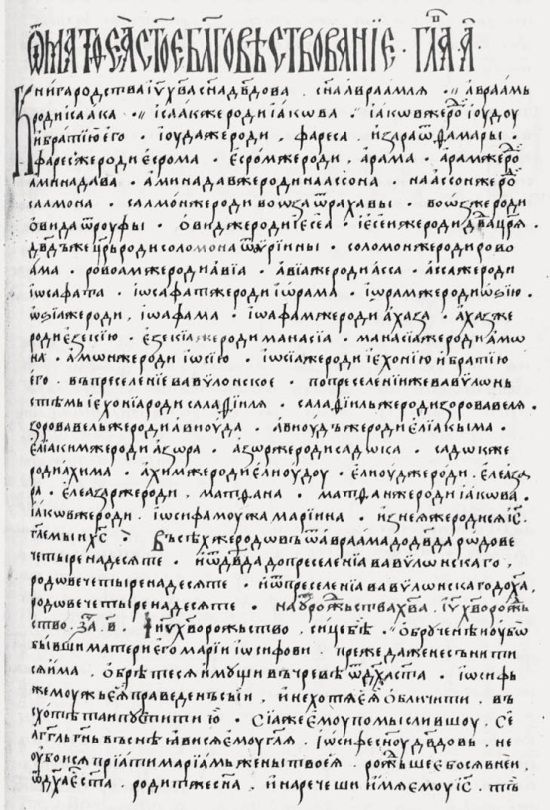 ѿматѳеѧс҃тоебл҃говѣствованїе · гла҃ а҃ ·
Книгародстваіу҃х҃васн҃адв҃дова · сн҃аавраамлѧ · авраамъ
родиісаака · ісаакжеродиіакѡва · іакѡвжерѡ҃ іоудоу
ибратїюего · іоудажероди , фареса , изараѿѳамары ·
фаресжеродиесрома · есромжероди , арама · арамжерѡ҃
аминадава · аминадавжеродинаассона · наассонжерѡ҃
салмона · салмонжеродивоѡзаѿрахавы · воѡзжероди
ѡвидаѿроуфы · ѡвиджеродиіесеа · іесеижеродидв҃дацр҃ѧ ·
дв҃дъжецр҃ьродисоломонаѿоуріины · соломонжеродирово
ама · ровоамжеродиавїа · авїажеродиасса · ассажероди
іѡсафата · іѡсафатжеродиіѡрама · іѡрамжеродиѡзїю ·
ѡзїажероди , іѡафама · іѡафамжеродиахаза · ахазже
родиезекїю · езекїажеродиманасїа · манасїажеродиамѡ
на · амѡнжеродиіѡсїю · іѡсїажеродиіехонїюибратїю
его · въпреселениевавѵлонское · попреселениижевавѵлонь
стѣмьіехонїародисалаѳїилѧ · салаѳїильжеродизоровавелѧ ·
зоровавельжеродиавиоуда · авиоудъжеродиелїакыма ·
елїакимжеродиазора · азоржеродисадѡка · садѡкже
родиахима · ахимжеродиелиоудоу · елиоуджероди , елеаза
ра · елеазаржероди , матѳана · матѳанжеродиіакова ·
іакѡвжероди , іѡсифамоужамарїина , изнеѧжеродисѧіс҃
гл҃емыих҃с · Въсѣхжеродовъѿавраамадодв҃дарѡдове
четыренадесѧте · иѿдв҃дадопреселенїававѵлоньскаго ,
родѡвечетыренадесѧте · иѿпреселенїававѵлонскагодох҃а ,
родовечетыренадесѧте · 
ство , за҃ в҃ · Іиу҃х҃ворожьство , сицебѣ · обрученѣиоубѡ
бывшиматериегомарїиіѡсифови , преждадаженеснити
сѧима , обрѣтесѧимущивъчревѣѿдх҃аст҃а · іѡсифь
жемоужьеѧправеденъсыи , инехотѧеѧобличити , въ
схотѣтаипуститию · Сїажеемоупомыслившоу , Се
агг҃лъгн҃ьвъснѣꙗвисѧемоугл҃ѧ , іѡсифесн҃оудв҃довъ , не
оубоисѧпрїатимарїамьженытвоеѧ , рожьшеебосѧвнеи ,
ѿдх҃аест҃а , родитжесн҃а , инаречешиимѧемоуіс҃ , тъ